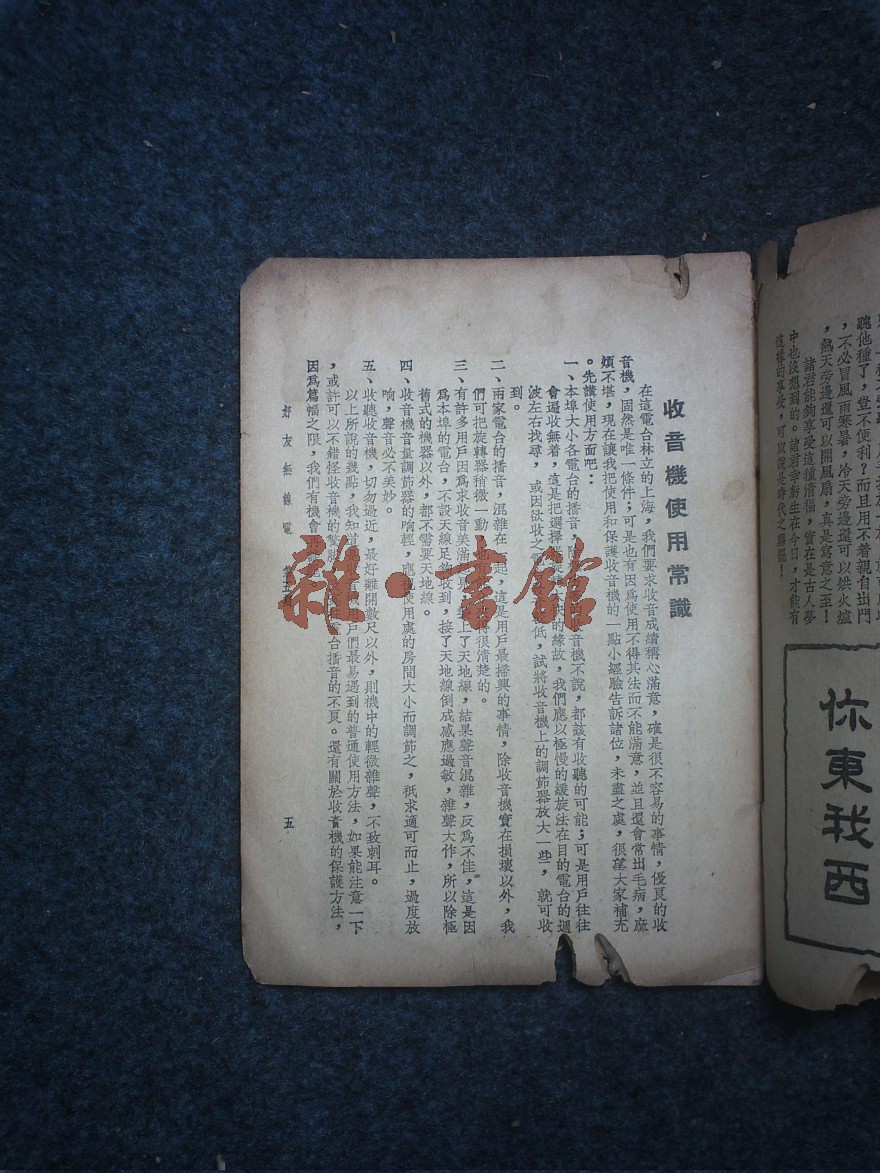 聽他種了，豈不便利？而且用不着親自出門
，不必冒風雨寒暑，冷天旁邊還可以烘火爐
，熱天旁邊還可以開風扇，真是寫意之至！
諸君能夠享受這種清福，實在是古人夢
中也沒想到的。諸君幸而生在今日，才能有
這樣的享受，可以說是時代之
你東我西
收音機使用常識
在這電台林立的上海，我們要求收音成績稱心滿意，確是很不容易的事情，優良的收
音機，固然是唯一條件；可是也有因為使用不得其法而不能滿意，並且還會常出毛病，麻
煩不堪，現在讓我把使用和保護收音機的一點小經驗告訴諸位，未盡之處，很望大家補充
。先講使用方面吧：
一、本埠大小各電台的播音，除 音機不說，都該有收聽的可能；可是用戶往往
會遍收無着，這是把選擇 快的緣故，我們應以極慢的緩旋法在目的電台的週
波左右找尋，或因欲收之 低，試將收音機上的調節器放大一些，就可收
到。
二、兩家電台的播音，混雜在一起，這是用戶最掃興的事情，除收音機實在損壞以外，我
們可把旋轉器稍微一動， 得很清楚的。
三、有許多用戶因為求收音美滿 上了天地線，結果聲音混雜，反為不佳，這是因
為本埠的電台，不設天線足夠收到，接了天地線倒成感應過敏，雜聲大作，所以除極
舊式的機器以外，都不需要天地線。
四、收音機音量調節器的响輕，應視使用處的房間大小而調節之，祇求適可而止，過度放
响，聲音必不美妙。
五、收聽收音機，切勿過近，最好離開數尺以外，則機中的輕微雜聲，不致刺耳。
以上所說的幾點，我知道 戶們最易遇到的普通使用方法，如果能注意一下
，或許可以不錯怪收音機的蹩脚 電台播音的不良。還有關於收音機的保護方法，
因為篇幅之限，我們有機會再
好友無線電
五
雜·書館